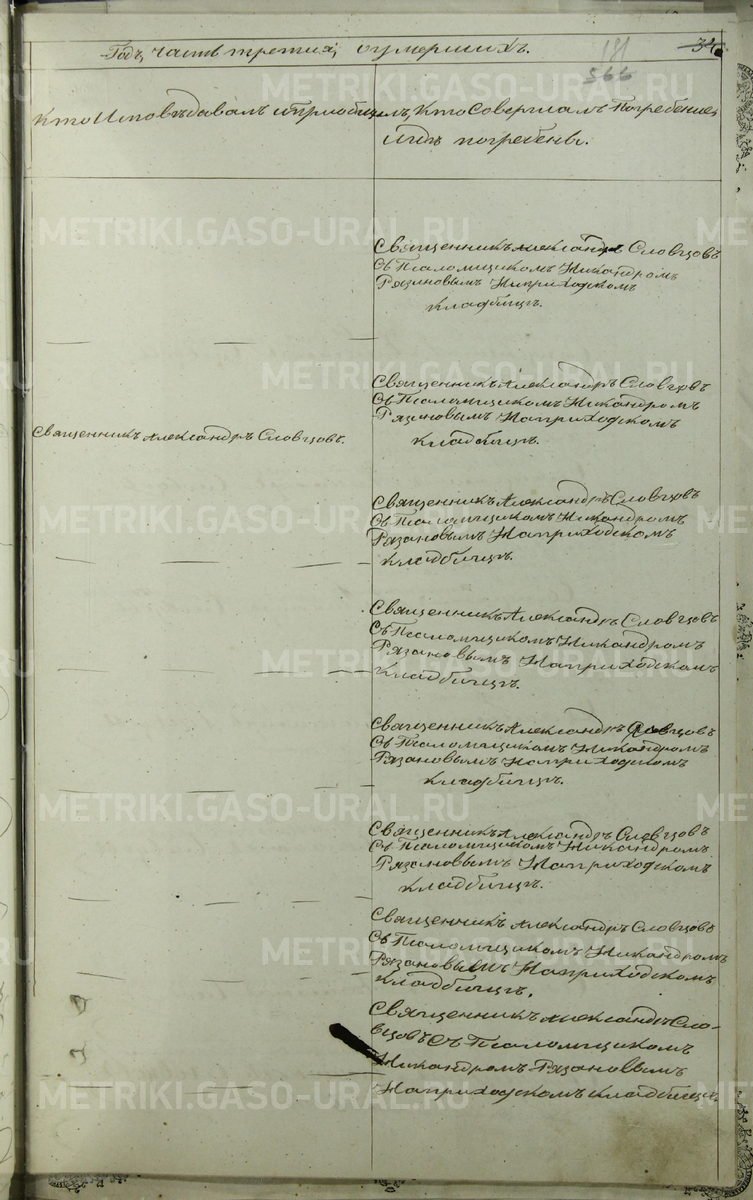 Годъ, часть третия, о умершихъ.
181
34
566
Кто Исповѣдавалъ и приобщалъ,
Кто Совершалъ Погребение,
и гдѣ погребены.
Священникъ Александръ Словцовъ
Съ Псаломщикомъ Никандромъ
Рязановымъ На приходскомъ
кладбищѣ.
Священникъ Александръ Словцовъ.
Священникъ Александръ Словцовъ
Съ Псаломщикомъ Никандромъ
Рязановымъ На приходскомъ
кладбищѣ.
Священникъ Александръ Словцовъ
Съ Псаломщикомъ Никандромъ
Рязановымъ На приходскомъ
кладбищѣ.
Священникъ Александръ Словцовъ
Съ Псаломщикомъ Никандромъ
Рязановымъ На приходскомъ
кладбищѣ.
Священникъ Александръ Словцовъ
Съ Псаломщикомъ Никандромъ
Рязановымъ На приходскомъ
кладбищѣ.
Священникъ Александръ Словцовъ
Съ Псаломщикомъ Никандромъ
Рязановымъ На приходскомъ
кладбищѣ.
Священникъ Александръ Словцовъ
Съ Псаломщикомъ Никандромъ
Рязановымъ На приходскомъ
кладбищѣ.
Священникъ Александръ Сло-
вцовъ Съ Псаломщикомъ
Никандромъ Рязановымъ
На приходскомъ кладбищѣ.
METRIKI.GASO-URAL.RU